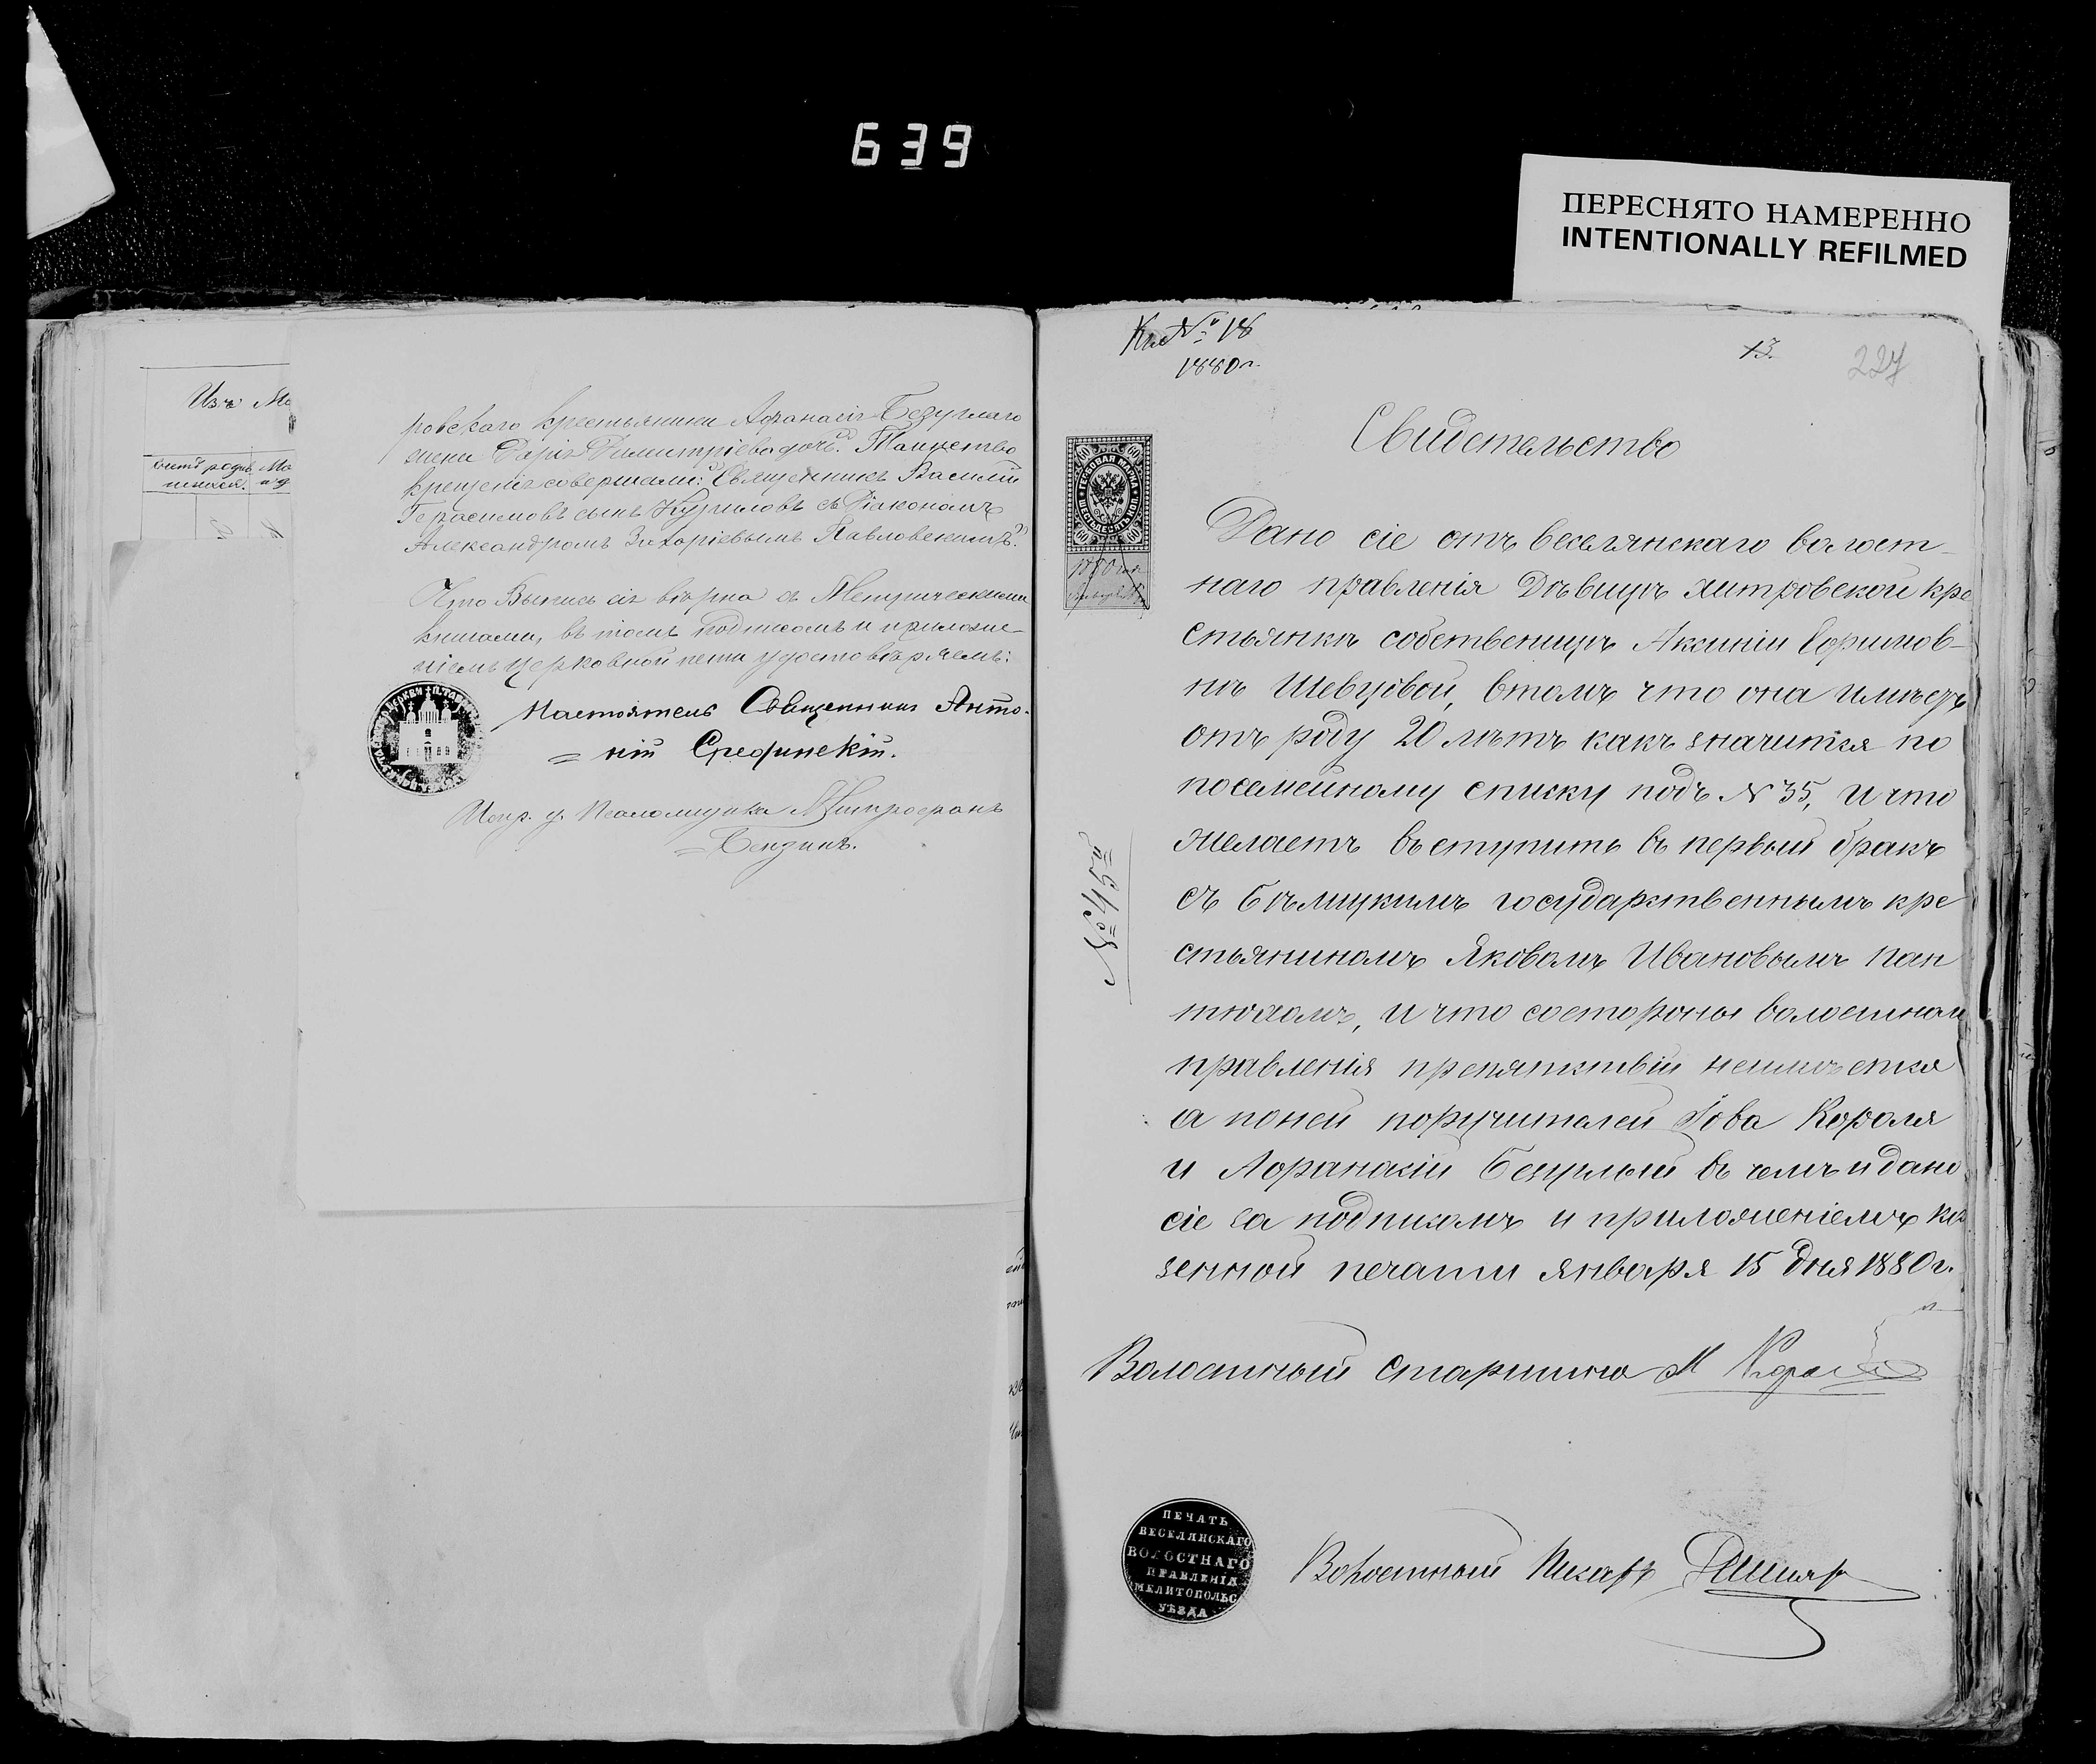 639
ПЕРЕСНЯТО НАМЕРЕННО
INTENTIONALLY REFILMED
Изъ Ме
ровскаго крестьянина Афанасія Безуглаго
жена Дарія Димитріева дочь. Таинство
крещенія совершали: Священникъ Василій
Герасимовъ сынъ Куриловъ съ Діакономъ
Александромъ Захаріевымъ Павловскимъ.
Что Выпись сія вѣрна съ Метрическими
книгами, въ томъ подписомъ и приложе-
ніемъ церковной печати удостовѣряемъ:
Настоятель Священникъ Анто-
= ній Срединскій.
Испр. д. Псаломщика Митрофанъ
=
Кие № 18
1880 г.
13.
227
Свидетельство
60 60
ГЕРБОВАЯ МАРКА
ШЕСТЬДЕСЯТЪ КОП
60 60
Дано сіе отъ Веселянскаго волост-
наго правленія Дѣвицѣ хитровской кре
стьянкѣ собственицѣ Аксиніи Ефимов-
нѣ Шевцовой, втомъ что она имѣетъ
отъ роду 20 лѣтъ какъ значится по
посемейному списку подъ № 35, и что
желаетъ въступить въ первый бракъ
съ Бѣлицкимъ государственнымъ кре
стьяниномъ Яковомъ Ивановымъ Пан
тюхомъ, и что состороны волостнаго
правленія препятствій неимѣется
а поней поручителей Іова Короля
и Афанасій Безуглый въ чемъ и дано
сіе за подписомъ и приложеніемъ ка
зенной печати января 15 дня 1880 г.
№ 45
Волостный старшина М Король
ПЕЧАТЬ
ВЕСЕЛЯНСКАГО
ВОЛОСТНАГО
ПРАВЛЕНІЯ
МЕЛИТОПОЛЬС
УѢЗДА
Волостный Писарь